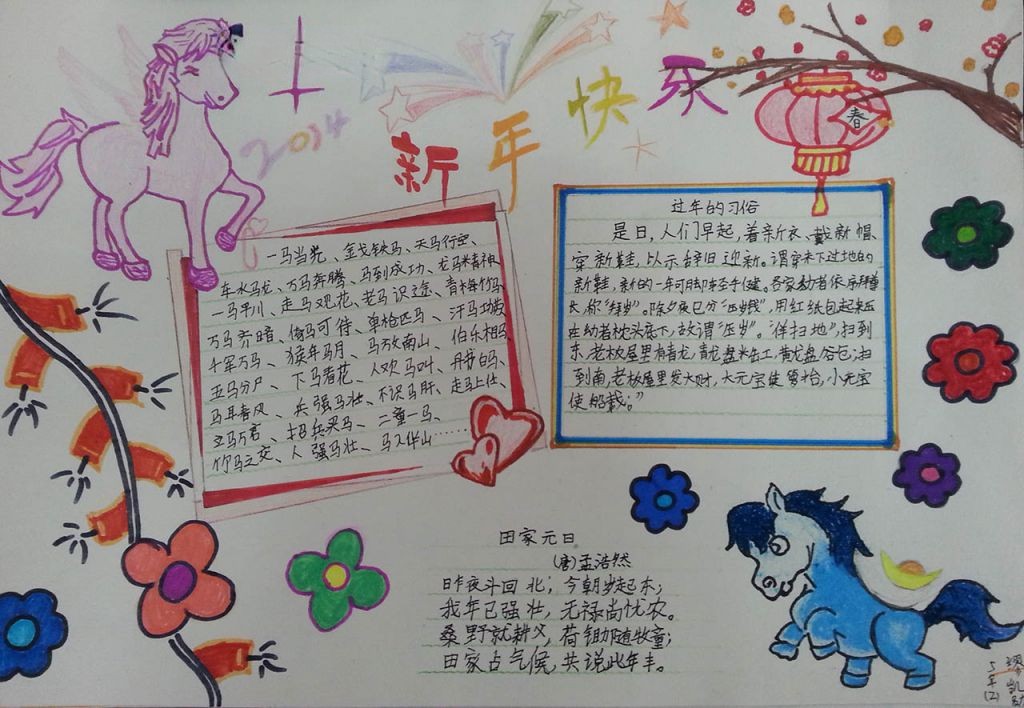 2014
新年快乐
春
一马当先、金戈铁马、天马行空、
车水马龙、万马奔腾、马到成功、龙马精神、
一马平川、走马观花、老马识途、青梅竹马、
万马齐喑、倚马可待、单枪匹马、汗马功劳、
千军万马、猴年马月、马放南山、伯乐相马、
五马分尸、下马看花、人欢马叫、
马耳春风、兵强马壮、不识马肝、走马上任、
立马万言、招兵买马、二童一马、
竹马之交、人强马壮、马入华山……
过年的习俗
是日,人们早起,着新衣、戴新帽、
穿新鞋,以示辞旧迎新。谓穿未下过地的
新鞋,新的一年可脚轻手健。各家幼者依序拜尊
长称“拜岁”。除夕夜已分“压岁钱”,用红纸包起来压
在幼者枕头底下,故谓“压岁”。“伴扫地”,扫到
东,老板屋里有青龙,青龙盘米缸,黄龙盘谷仓;扫
到南,老板屋里发大财,大元宝
使船载。”
田家元日
(唐)孟浩然
昨夜斗回北,今朝岁起东;
我年已强壮,无禄尚忧农。
桑野就耕父,荷锄随牧童;
田家占气候,共说此年丰。
5年(2)